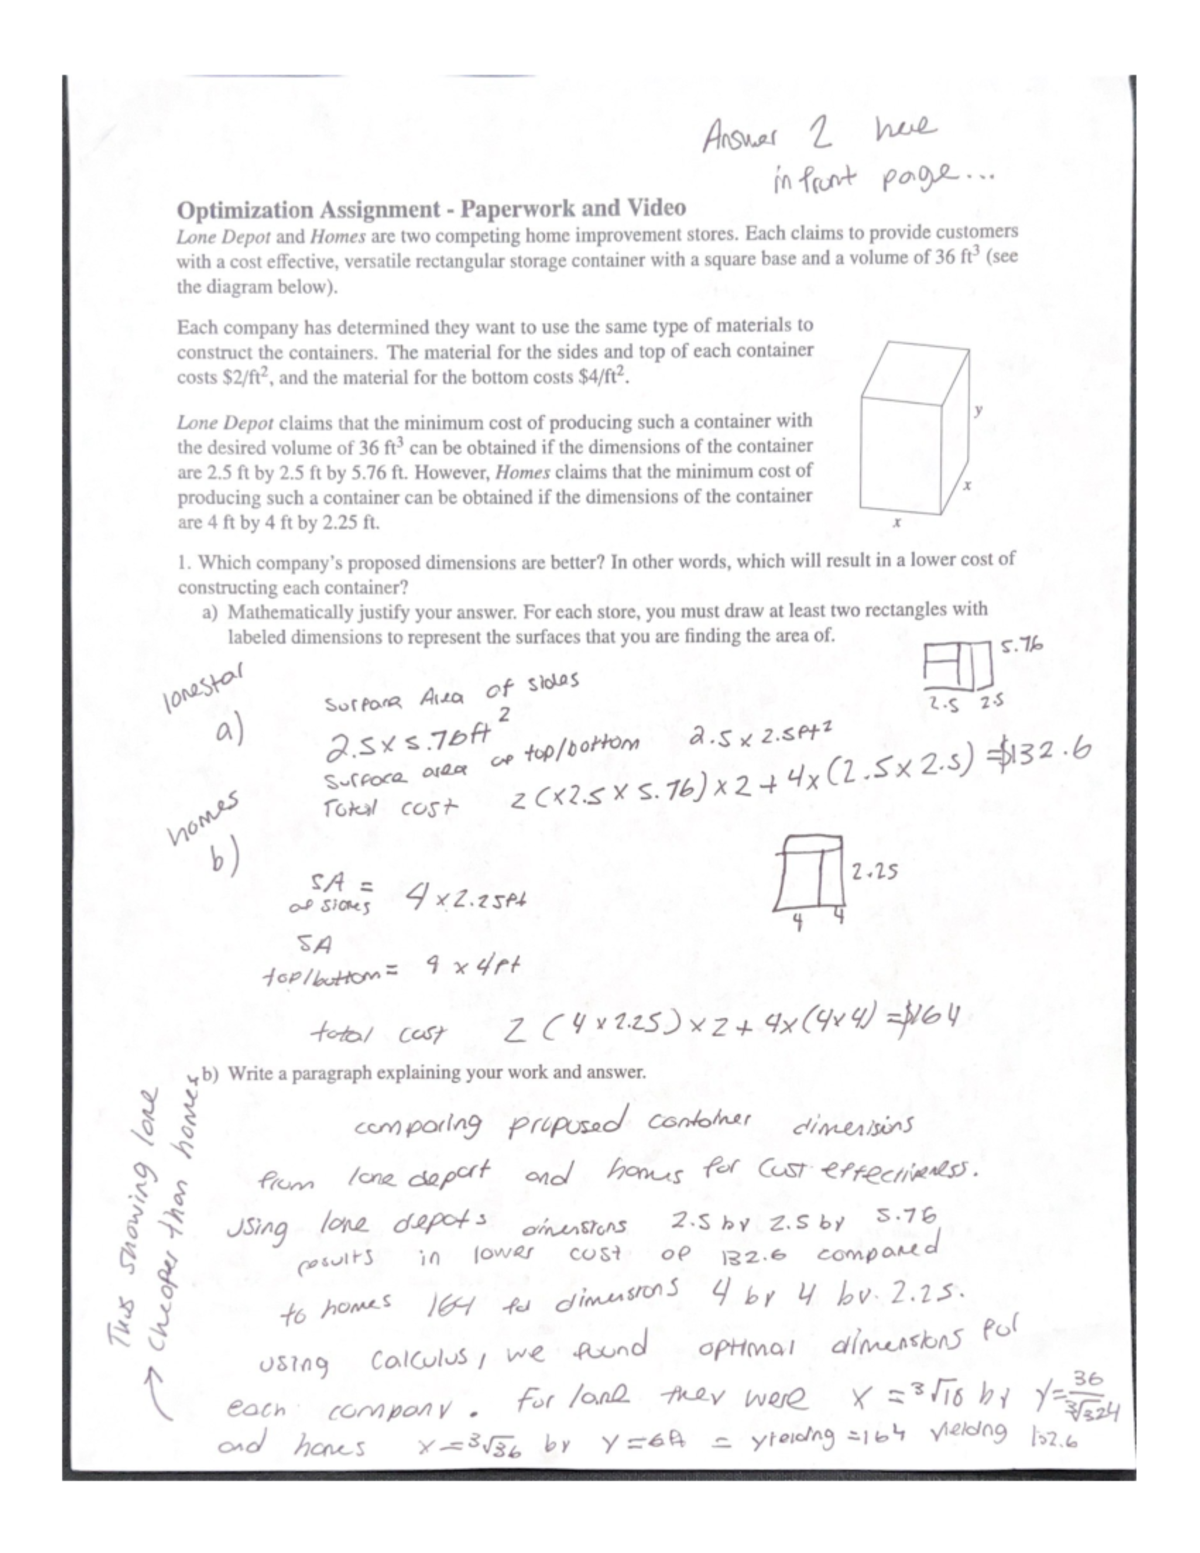 Answer 2 here
in front page...
Optimization Assignment - Paperwork and Video
Lone Depot and Homes are two competing home improvement stores. Each claims to provide customers
with a cost effective, versatile rectangular storage container with a square base and a volume of 36 ft³ (see
the diagram below).
Each company has determined they want to use the same type of materials to
construct the containers. The material for the sides and top of each container
costs $2/ft², and the material for the bottom costs $4/ft².
Lone Depot claims that the minimum cost of producing such a container with
the desired volume of 36 ft³ can be obtained if the dimensions of the container
are 2.5 ft by 2.5 ft by 5.76 ft. However, Homes claims that the minimum cost of
producing such a container can be obtained if the dimensions of the container
are 4 ft by 4 ft by 2.25 ft.
y
x
x
1. Which company's proposed dimensions are better? In other words, which will result in a lower cost of
constructing each container?
a) Mathematically justify your answer. For each store, you must draw at least two rectangles with
labeled dimensions to represent the surfaces that you are finding the area of.
5.76
2.5 2.5
lonestar
a)
Surface Area of sides
2.5 x 5.76ft²
Surface area of top/bottom 2.5 x 2.5ft²
Total cost 2(x2.5 x 5.76) x 2 + 4x(2.5 x 2.5) = $132.6
homes
b)
2.25
4 4
SA =
of sides 4 x 2.25ft
SA
top/bottom = 4 x 4ft
total cost 2(4 x 2.25) x 2 + 4x(4x4) = $164
b) Write a paragraph explaining your work and answer.
comparing proposed container dimensions
from lone depot and homes for cost effectiveness.
using lone depots dimensions 2.5 by 2.5 by 5.76
results in lower cost of 132.6 compared
to homes 164 for dimensions 4 by 4 by 2.25.
using calculus, we found optimal dimensions for
each company. For lone they were x = ³√18 by y = 36/³√324
and homes x = ³√36 by y = 6ft = yielding = 164 yielding 132.6
Thus showing lone
cheaper than homes